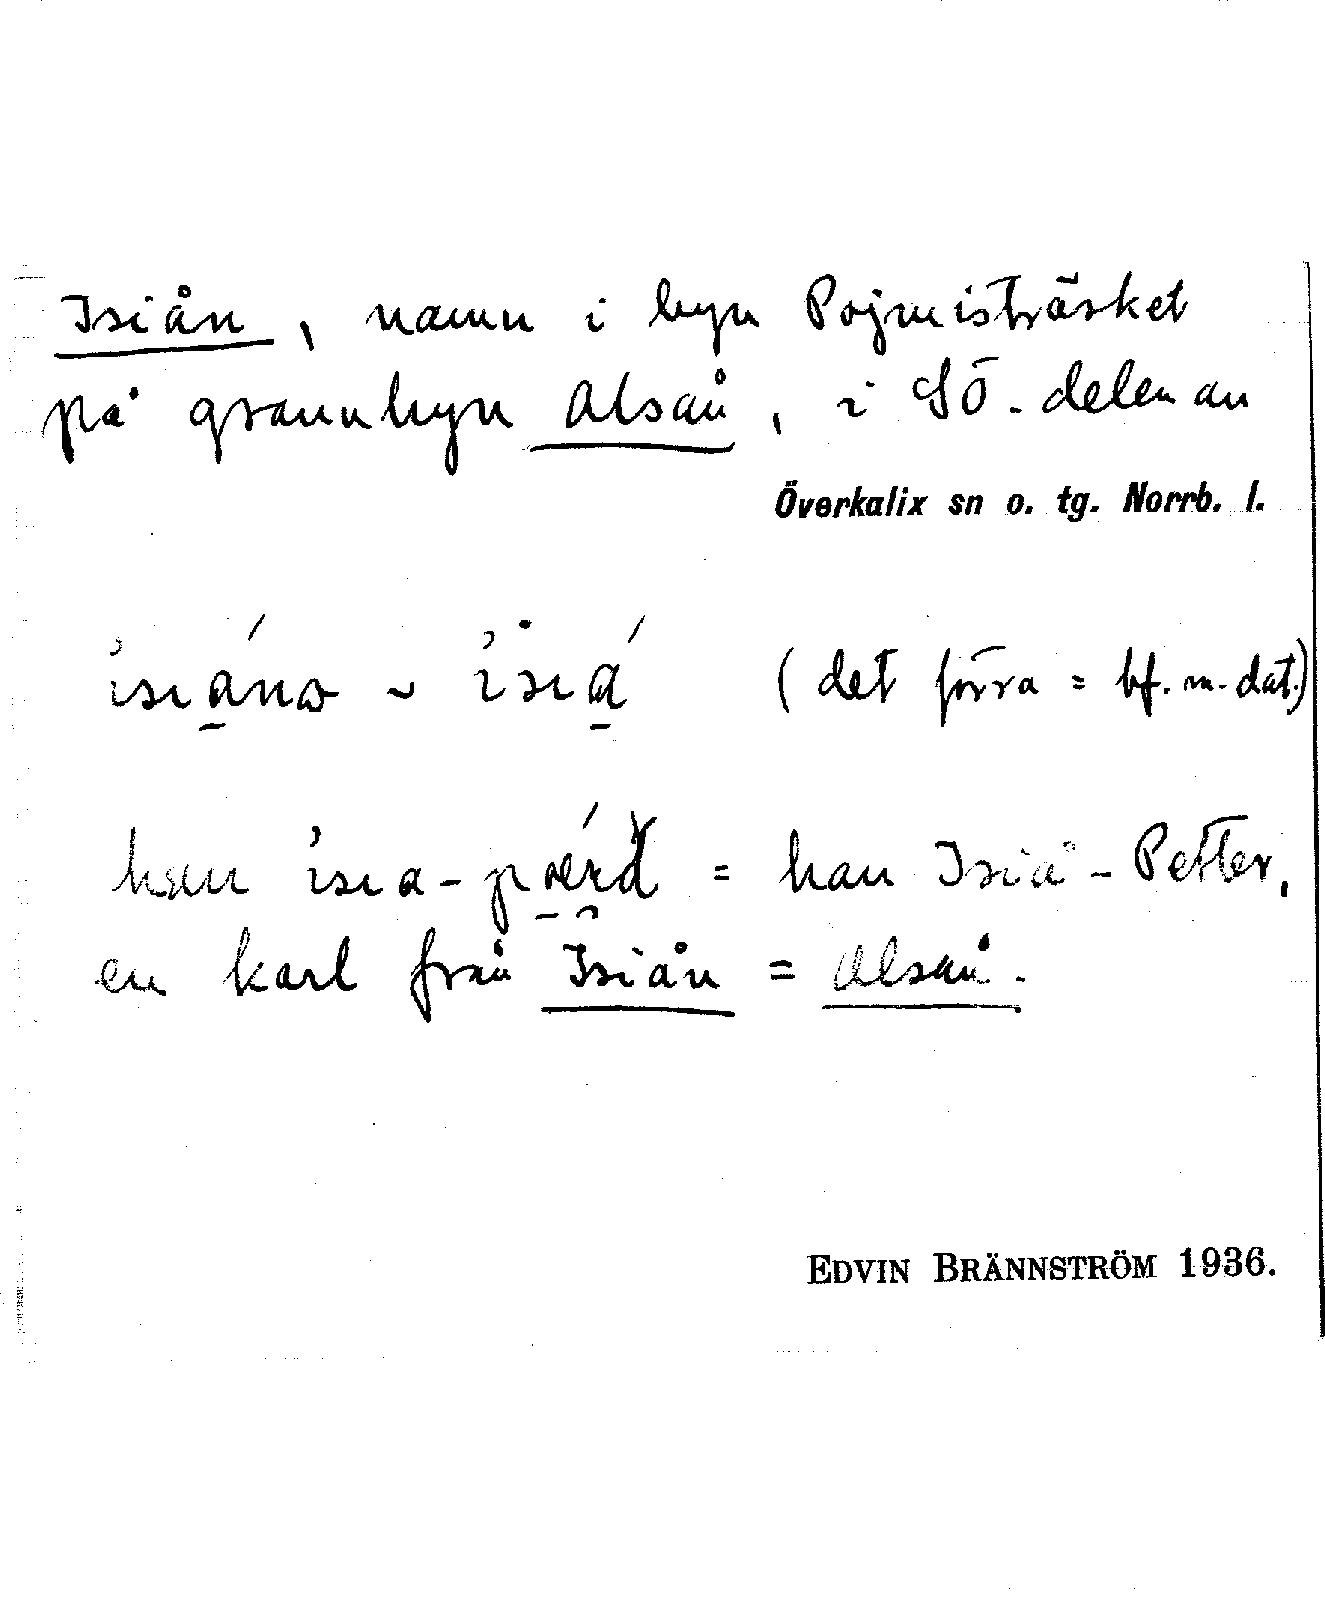 Isiån, namn i byn Pojmisträsket
på grannbyn Alsån, i SÖ. delen av
Överkalix sn o. tg. Norrb. l.
(det förra = bf. m. dat.)
han = han Isiå-Petter,
en karl från Isiån = Alsån.
EDVIN BRÄNNSTRÖM 1936.